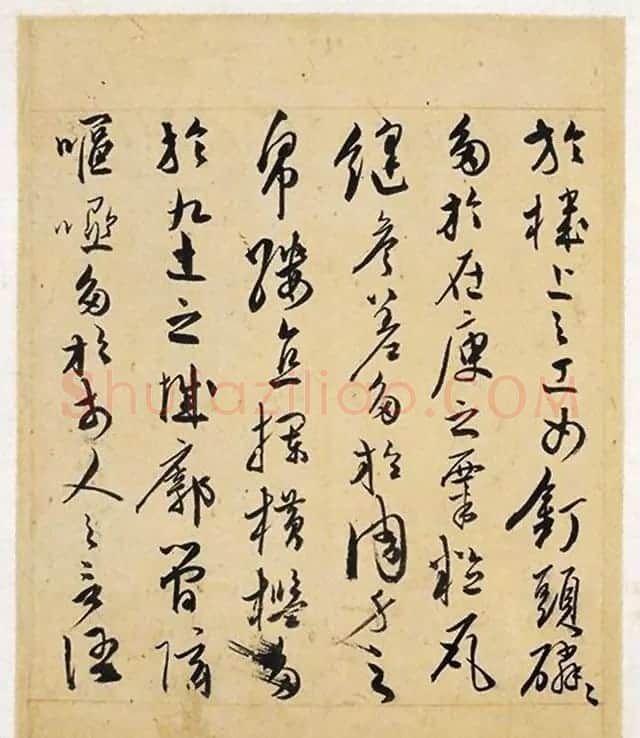 於機上之工女釘頭磷〻
多於在庾之粟粒瓦
縫參差多於周身之
帛縷直欄橫檻多
於九土之城郭管弦
嘔啞多於市人之言語
Shufaziliao.COM